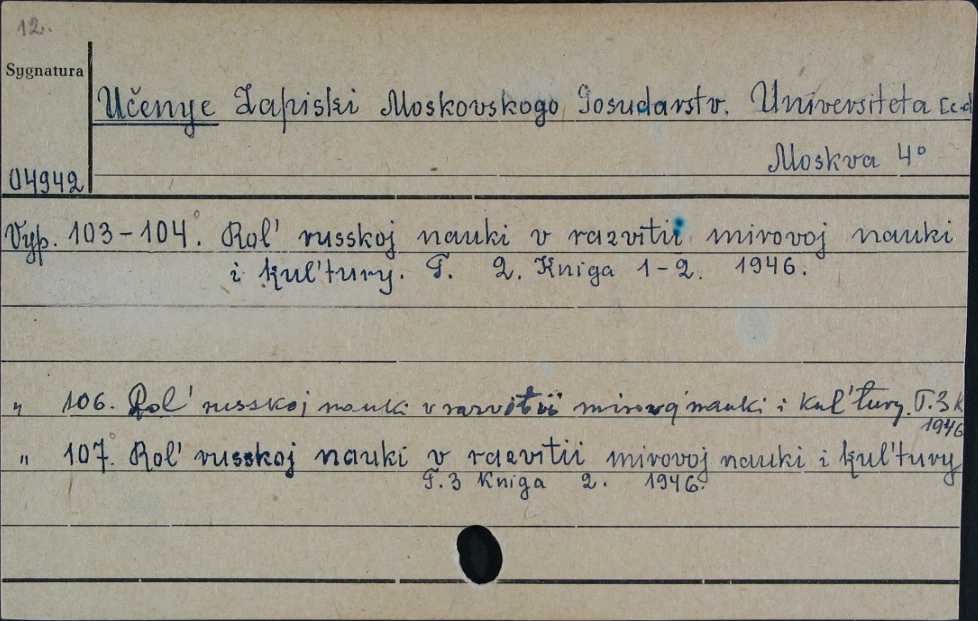 12.
Sygnatura
Učenye Zapiski Moskovskogo Gosudarstv. Universiteta
Moskva 4°
04942
Vyp. 103-104. Rol' russkoj nauki v razvitii mirovoj nauki
i kul'tury. T. 2. Kniga 1-2. 1946.
„ 106. Rol' russkoj nauki v razvitii mirovoj nauki i kul'tury. T.3 K
1946
„ 107. Rol' russkoj nauki v razvitii mirovoj nauki i kul'tury
T.3 Kniga 2. 1946.